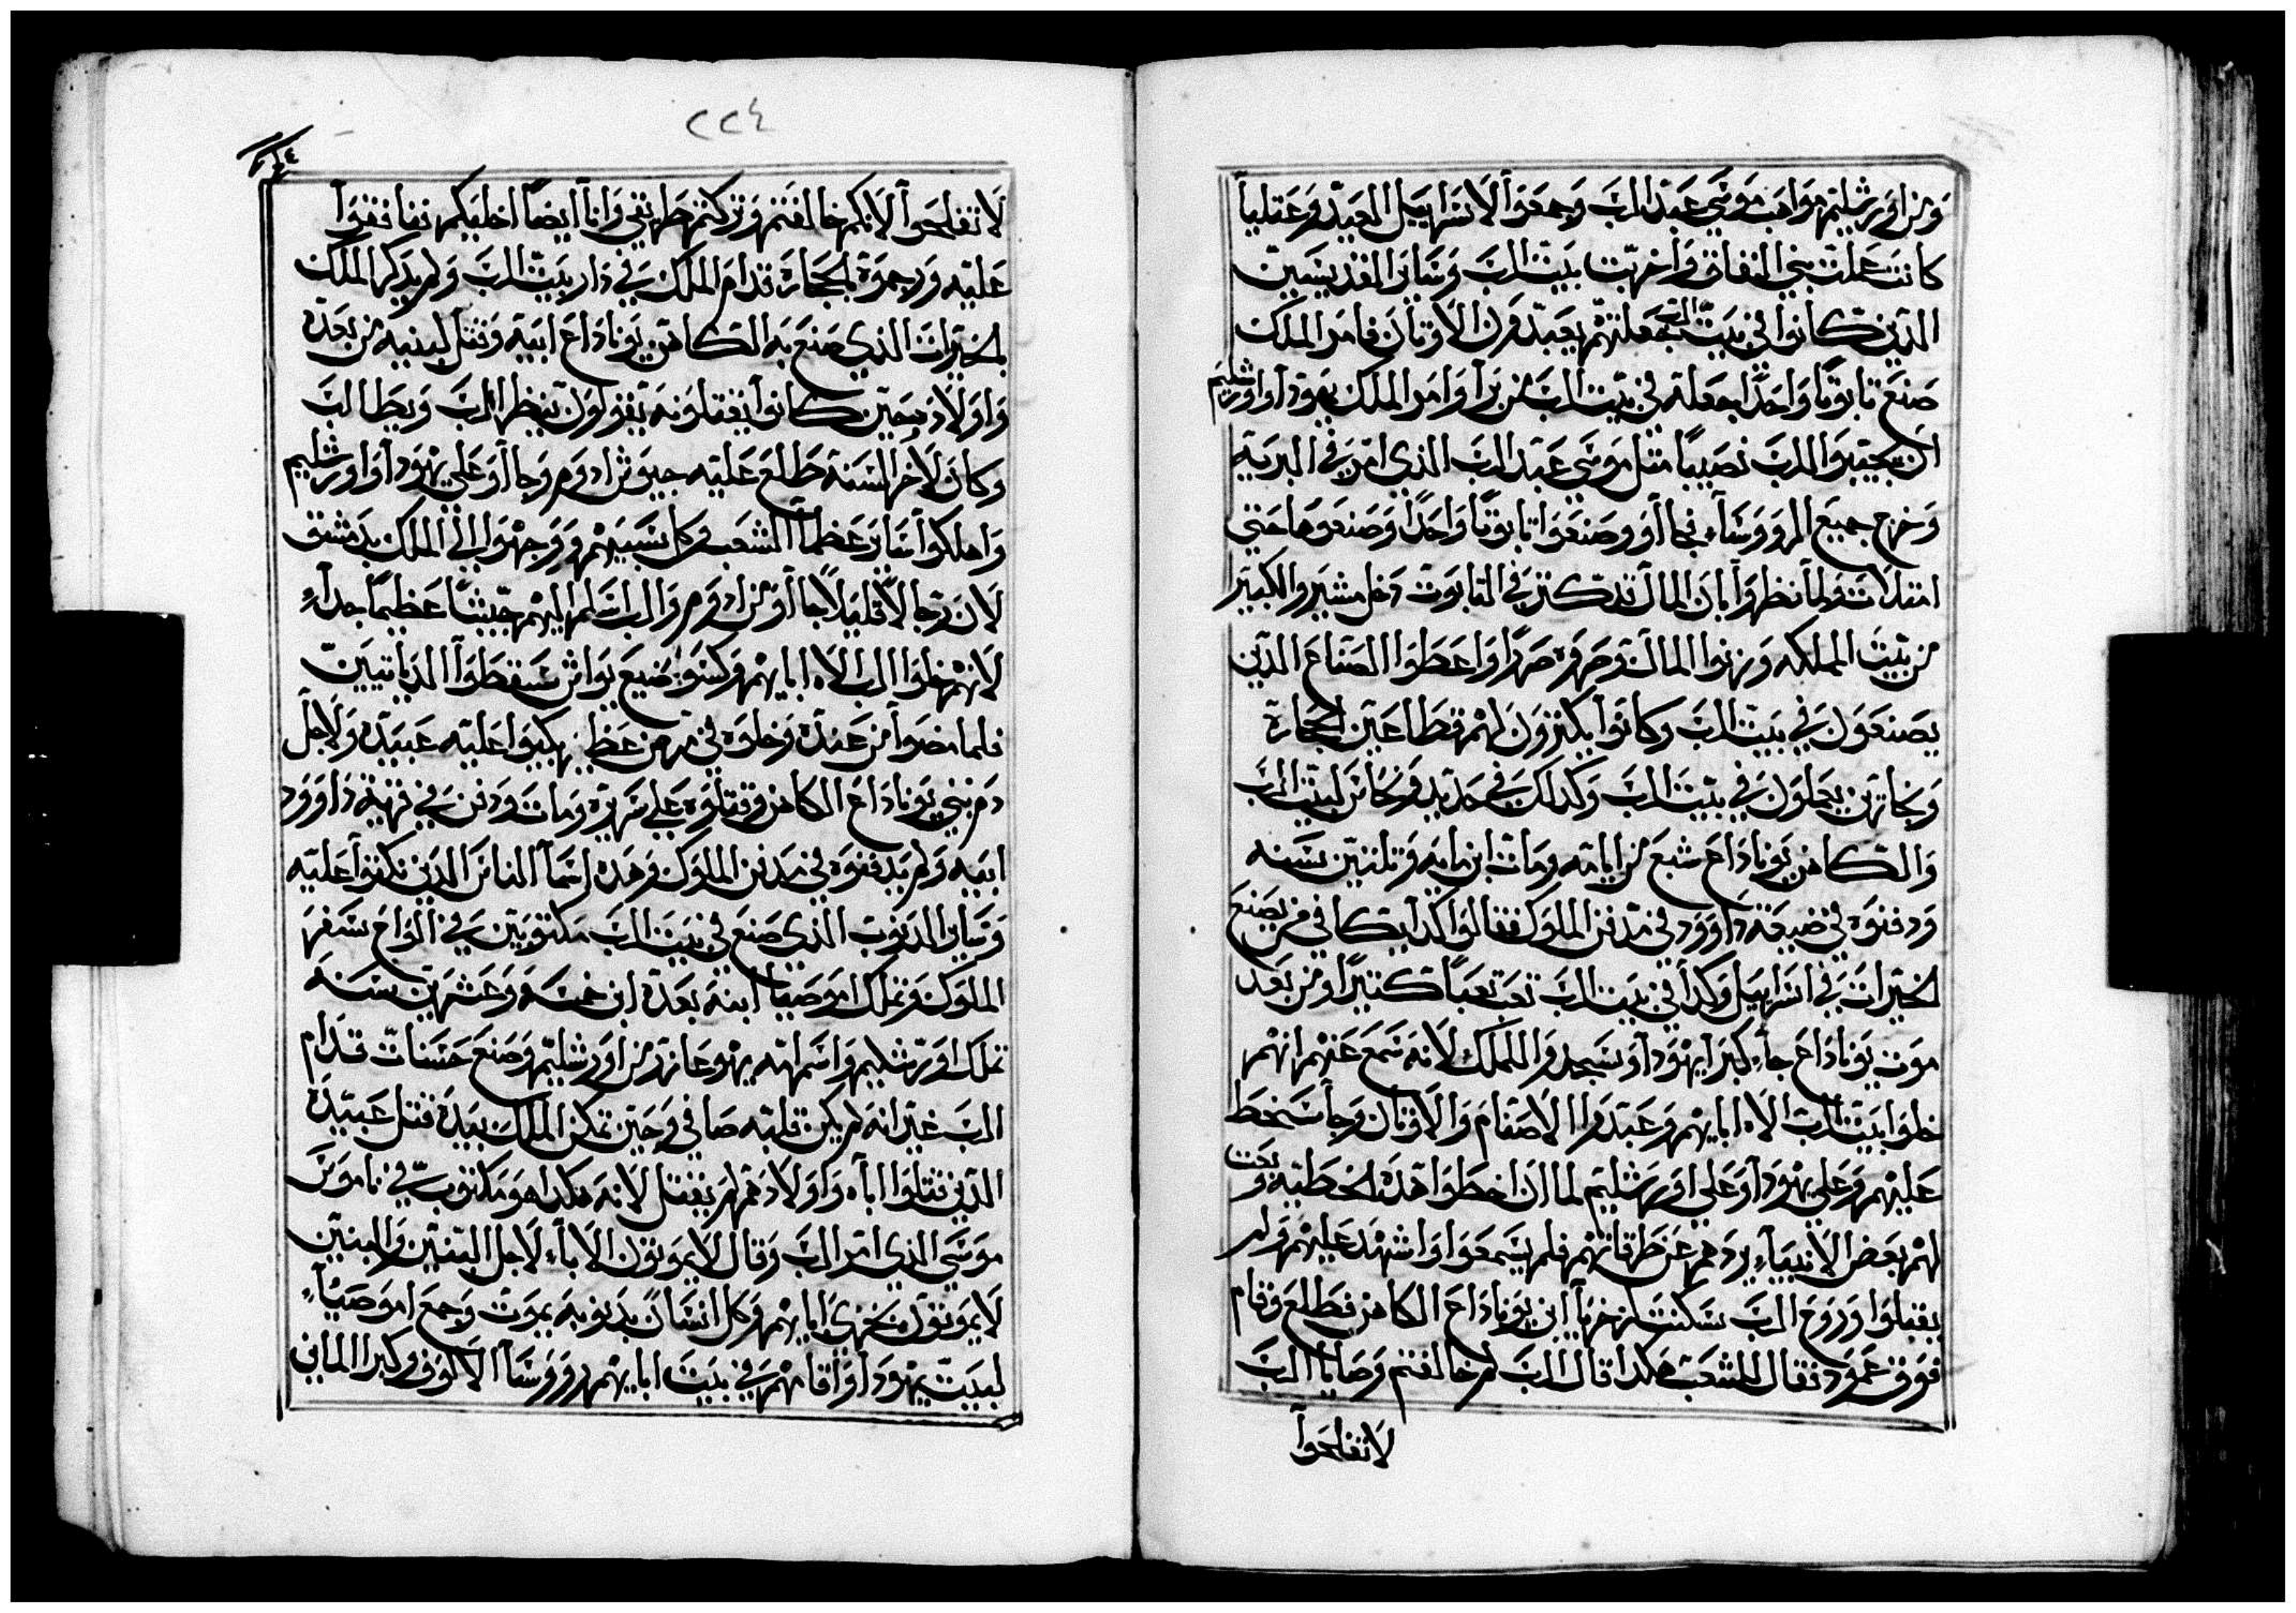 ومن اورشليم مواهب موسى عبد الرب وجمعوا لاسراييل العيد وعتليا
كانت عملت بني النفاق واخربت بيت الرب وساير القديسين
الدين كانوا في بيت الرب جعلتهم يعبدون الاوتان فامر الملك
صنع تابوتا واحدا جعله في بيت الرب من برا وامر الملك يهودا واورشليم
ان يجيبوا للرب نصيبا متل موسى عبد الرب الذي امر في البرية
وخرج جميع الرووساء فجااو وصنعوا تابوتا واحدا وصنعوها حتى
امتلات ولما نظروا بان المال قد كتر في التابوت دخل مشير والكبير
من بيت المملكه وزنوا المال وصروه صررا واعطوا الصناع الدين
يصنعون في بيت الرب وكانوا يكنزون لهم قطاعين الحجارة
ونجارين يعملون في بيت الرب وكدلك في حديد ونحاس لبيت الرب
والكاهن يوناداع شبع من ايامه ومات ابن مايه وتلتين سنه
ودفنوه في ضيعة داوود في مدفن الملوك فقالوا كدا يكافي من يصنع
الخيرات في اسراييل وكدا في بيت الرب تعب تعبا كتيرا ومن بعد
موت يوناداع جاء كبرا يهودا وسجدوا للملك لانه سمع عنهم انهم
خلوا بيت الرب الاه ابايهم وعبدوا الاصنام والاوتان وجا سخط
عليهم وعلى يهودا وعلى اورشليم لما ان اخطوا هده الخطيه وبعت
لهم بعض الانبياء يردهم عن طرقاتهم فلم يسمعوا واشهد عليهم ولم
يقبلوا وروح الرب سكنت زخريا ابن يوناداع الكاهن فطلع وقام
فوق عمود فقال للشعب هكدا قال الرب لم خالفتم وصايا الرب
لا تفلحوا
٢٢٤
لا تفلحوا لانكم خالفتم وتركتم طريقي وانا ايضا اخليكم فنافقوا
عليه ورجموه بالحجارة قدام الملك في دار بيت الرب ولم يدكر الملك
الخيرات الذي صنع به الكاهن يوناداع ابيه وقتل لبنيه من بعده
واولاد حين كانوا يقتلونه يقولون ينظر الرب ويطالب
وكان لاخر السنه طلع عليه جيوش ادوم وجااو على يهودا واورشليم
واهلكوا ساير عظما الشعب وكل سبيهم ووجهوا الى الملك بدمشق
لان رجالا قليلا جااو من ادوم والرب اسلم اليهم جيشا عظيما جداء
لانهم خلوا الرب الاه ابايهم وكسو ضيع يواش سقطوا الدياتيين
فلما مضوا من عنده وخلوه في مرض عظيم ركبوا عليه عبيده ولاجل
دم بني يوناداع الكاهن وقتلوه على سريره ومات ودفن في قرية داوود
ابيه ولم يدفنوه في مدفن الملوك وهده اسما الناس الدين نكتوا عليه
وساير الدنوب الذي صنع في بيت الرب مكتوبين في الواح سفر
الملوك وتملك اموصيا ابنه بعده ابن خمسه وعشرين سنه
تملك اورشليم واسم امه يهوعازر من اورشليم وصنع حسنات قدام
الرب غير انه لم يكن قلبه صافي وحين تمكن الملك بيده قتل عبيده
الدين قتلوا اباه واولادهم لم يقتل لانه هكدا هو مكتوب في ناموس
موسى الذي امر الرب وقال لا يموتون الاباء لاجل البنين والبنين
لا يموتون من خزى ابايهم وكل انسان بدنوبه يموت وجمع اموصياء
لبيت يهودا واقامهم في بيت ابايهم ورووسا الالوف وكبرا الماني